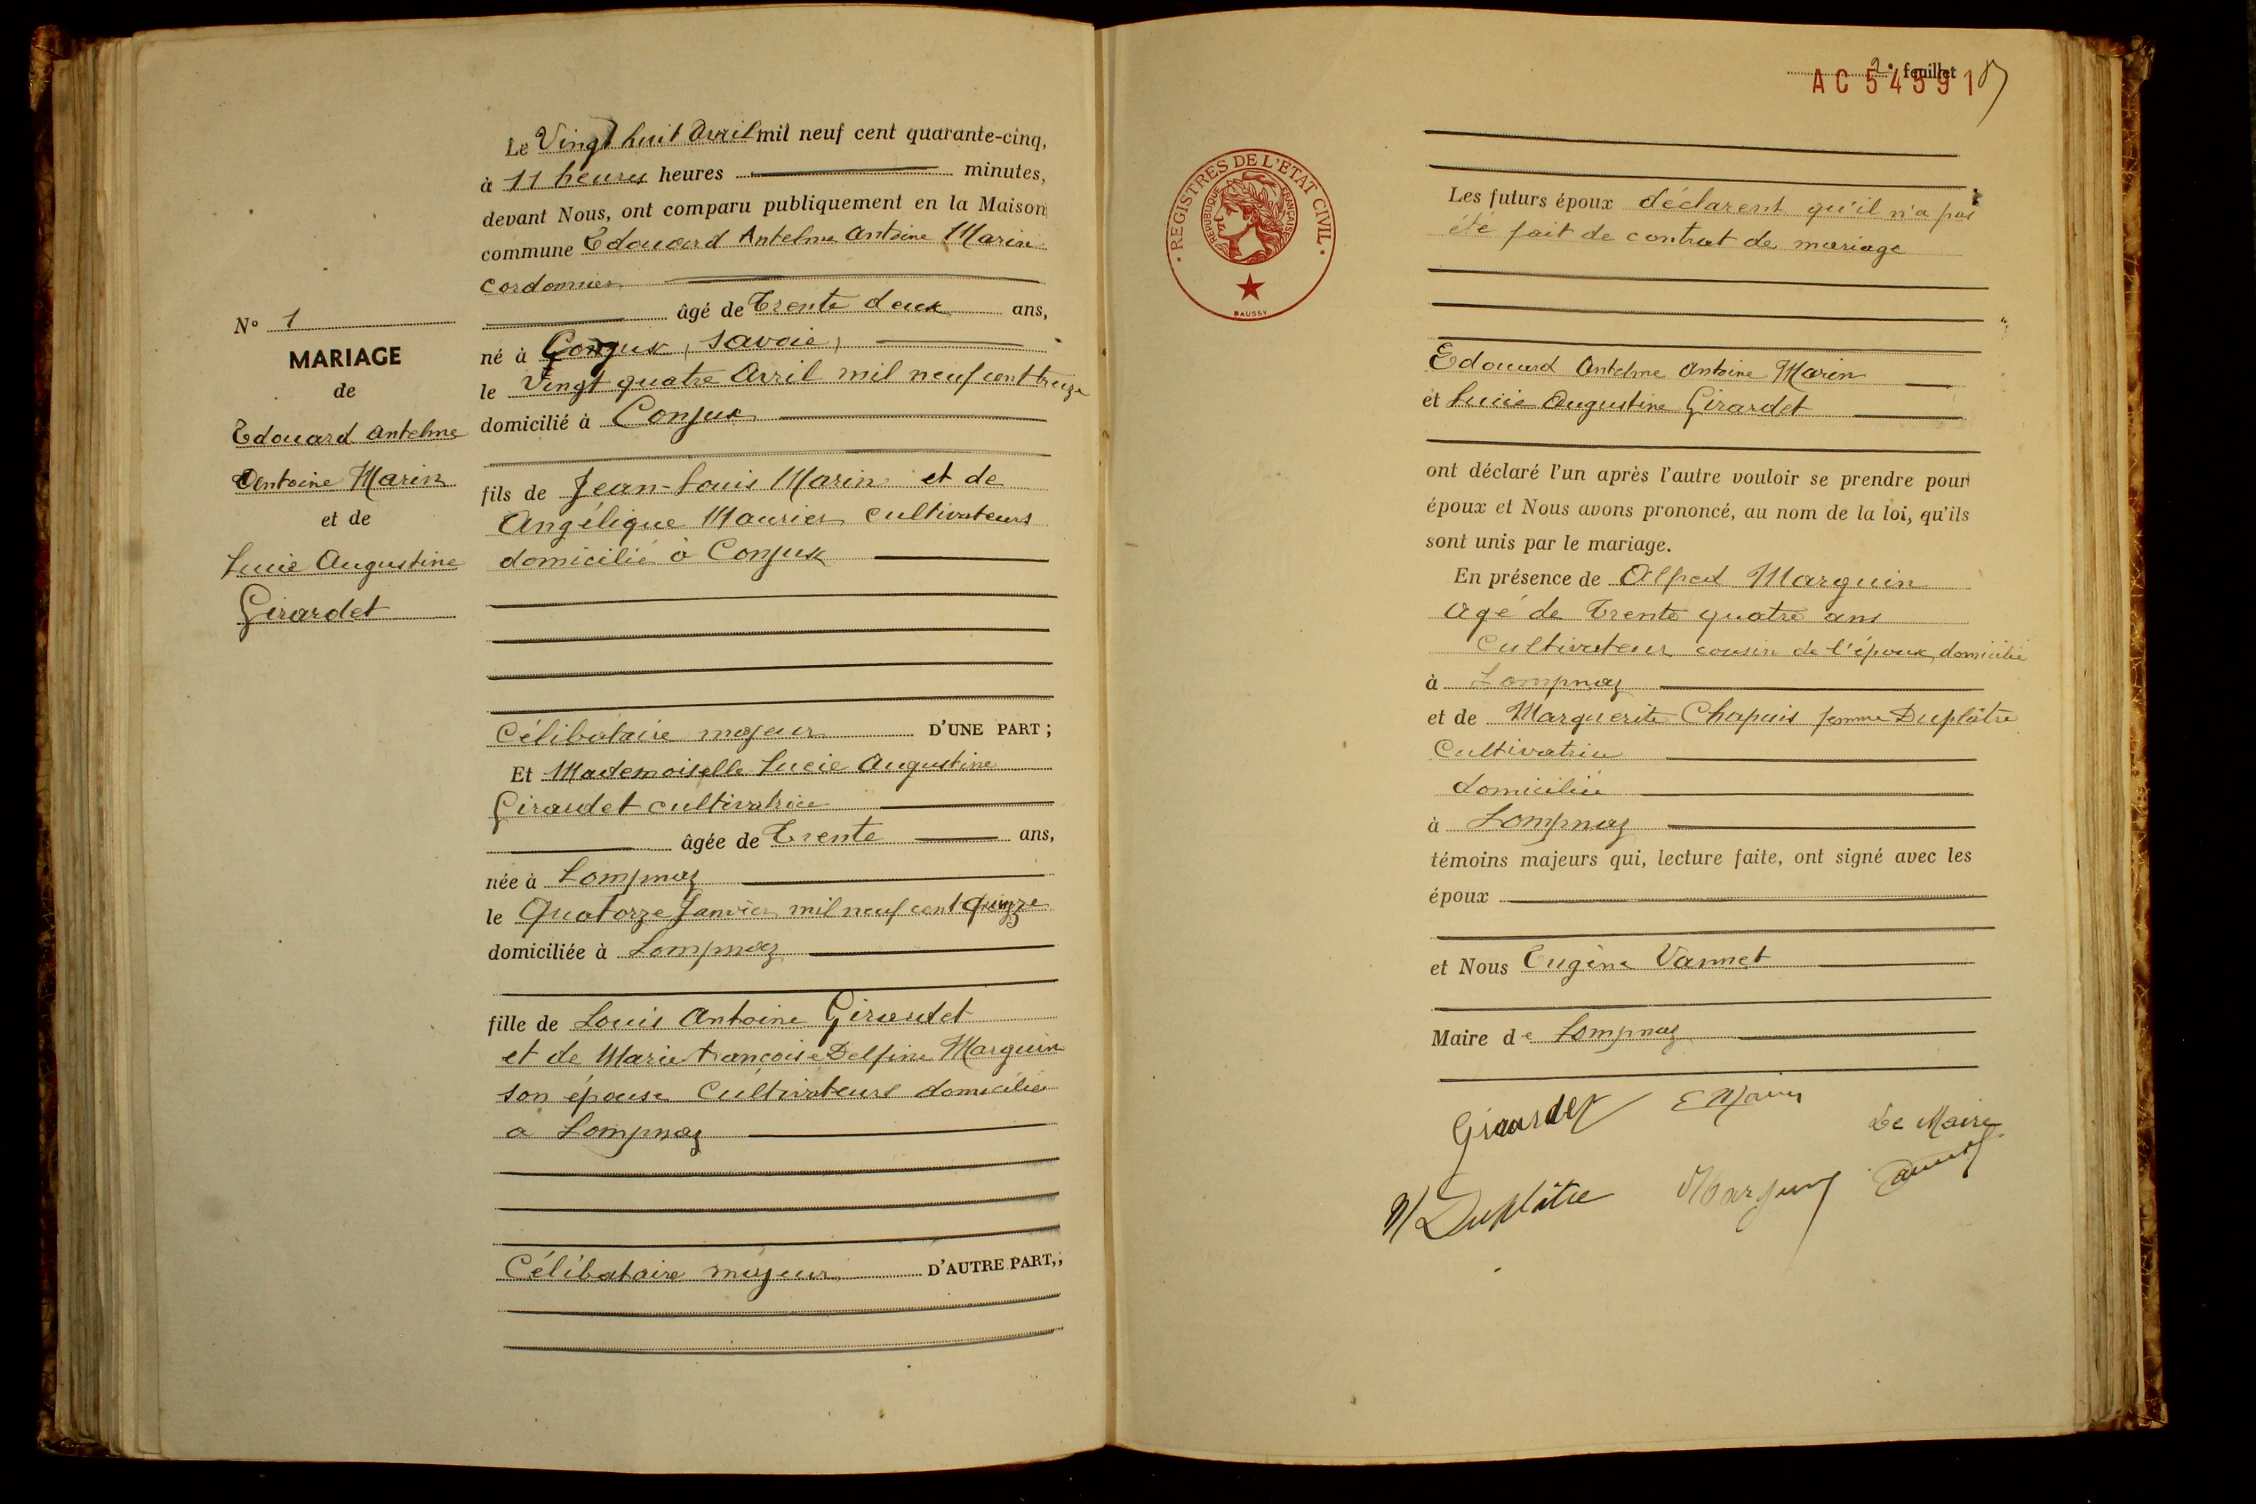 N° 1
MARIAGE
de
Edouard Antelme
Antoine Marin
et de
Lucie Augustine
Girardet
Le Vingt huit Avril mil neuf cent quarante-cinq,
à 11 heures heures minutes,
devant Nous, ont comparu publiquement en la Maison
commune Edouard Antelme Antoine Marin
Cordonnier
âgé de Trente deux ans,
né à Conjux, Savoie,
le Vingt quatre Avril mil neuf cent treize
domicilié à Conjux
fils de Jean-Louis Marin et de
Angélique Maurier cultivateurs
domicilié à Conjux
Célibataire majeur D'UNE PART ;
Et Mademoiselle Lucie Augustine
Girardet cultivatrice
âgée de Trente ans,
née à Lompnaz
le Quatorze Janvier mil neuf cent quinze
domiciliée à Lompnaz
fille de Louis Antoine Girardet
et de Marie Françoise Delfine Marguin
son épouse Cultivateurs domicilié
a Lompnaz
Célibataire majeur D'AUTRE PART,;
2e feuillet
AC 54591
REGISTRES DE L'ETAT CIVIL
REPUBLIQUE FRANÇAISE
BAUSSY
Les futurs époux déclarent qu'il n'a pas
été fait de contrat de mariage
Edouard Antelme Antoine Marin
et Lucie Augustine Girardet
ont déclaré l'un après l'autre vouloir se prendre pour
époux et Nous avons prononcé, au nom de la loi, qu'ils
sont unis par le mariage.
En présence de Alfred Marguin
agé de Trente quatre ans
Cultivateur cousin de l'époux domicilié
à Lompnaz
et de Marguerite Chapuis femme Duplâtre
Cultivatrice
domiciliée
à Lompnaz
témoins majeurs qui, lecture faite, ont signé avec les
époux
et Nous Eugène Vannet
Maire de Lompnaz
Girardet E Marin
Le Maire
M Duplâtre Marguin Vannet